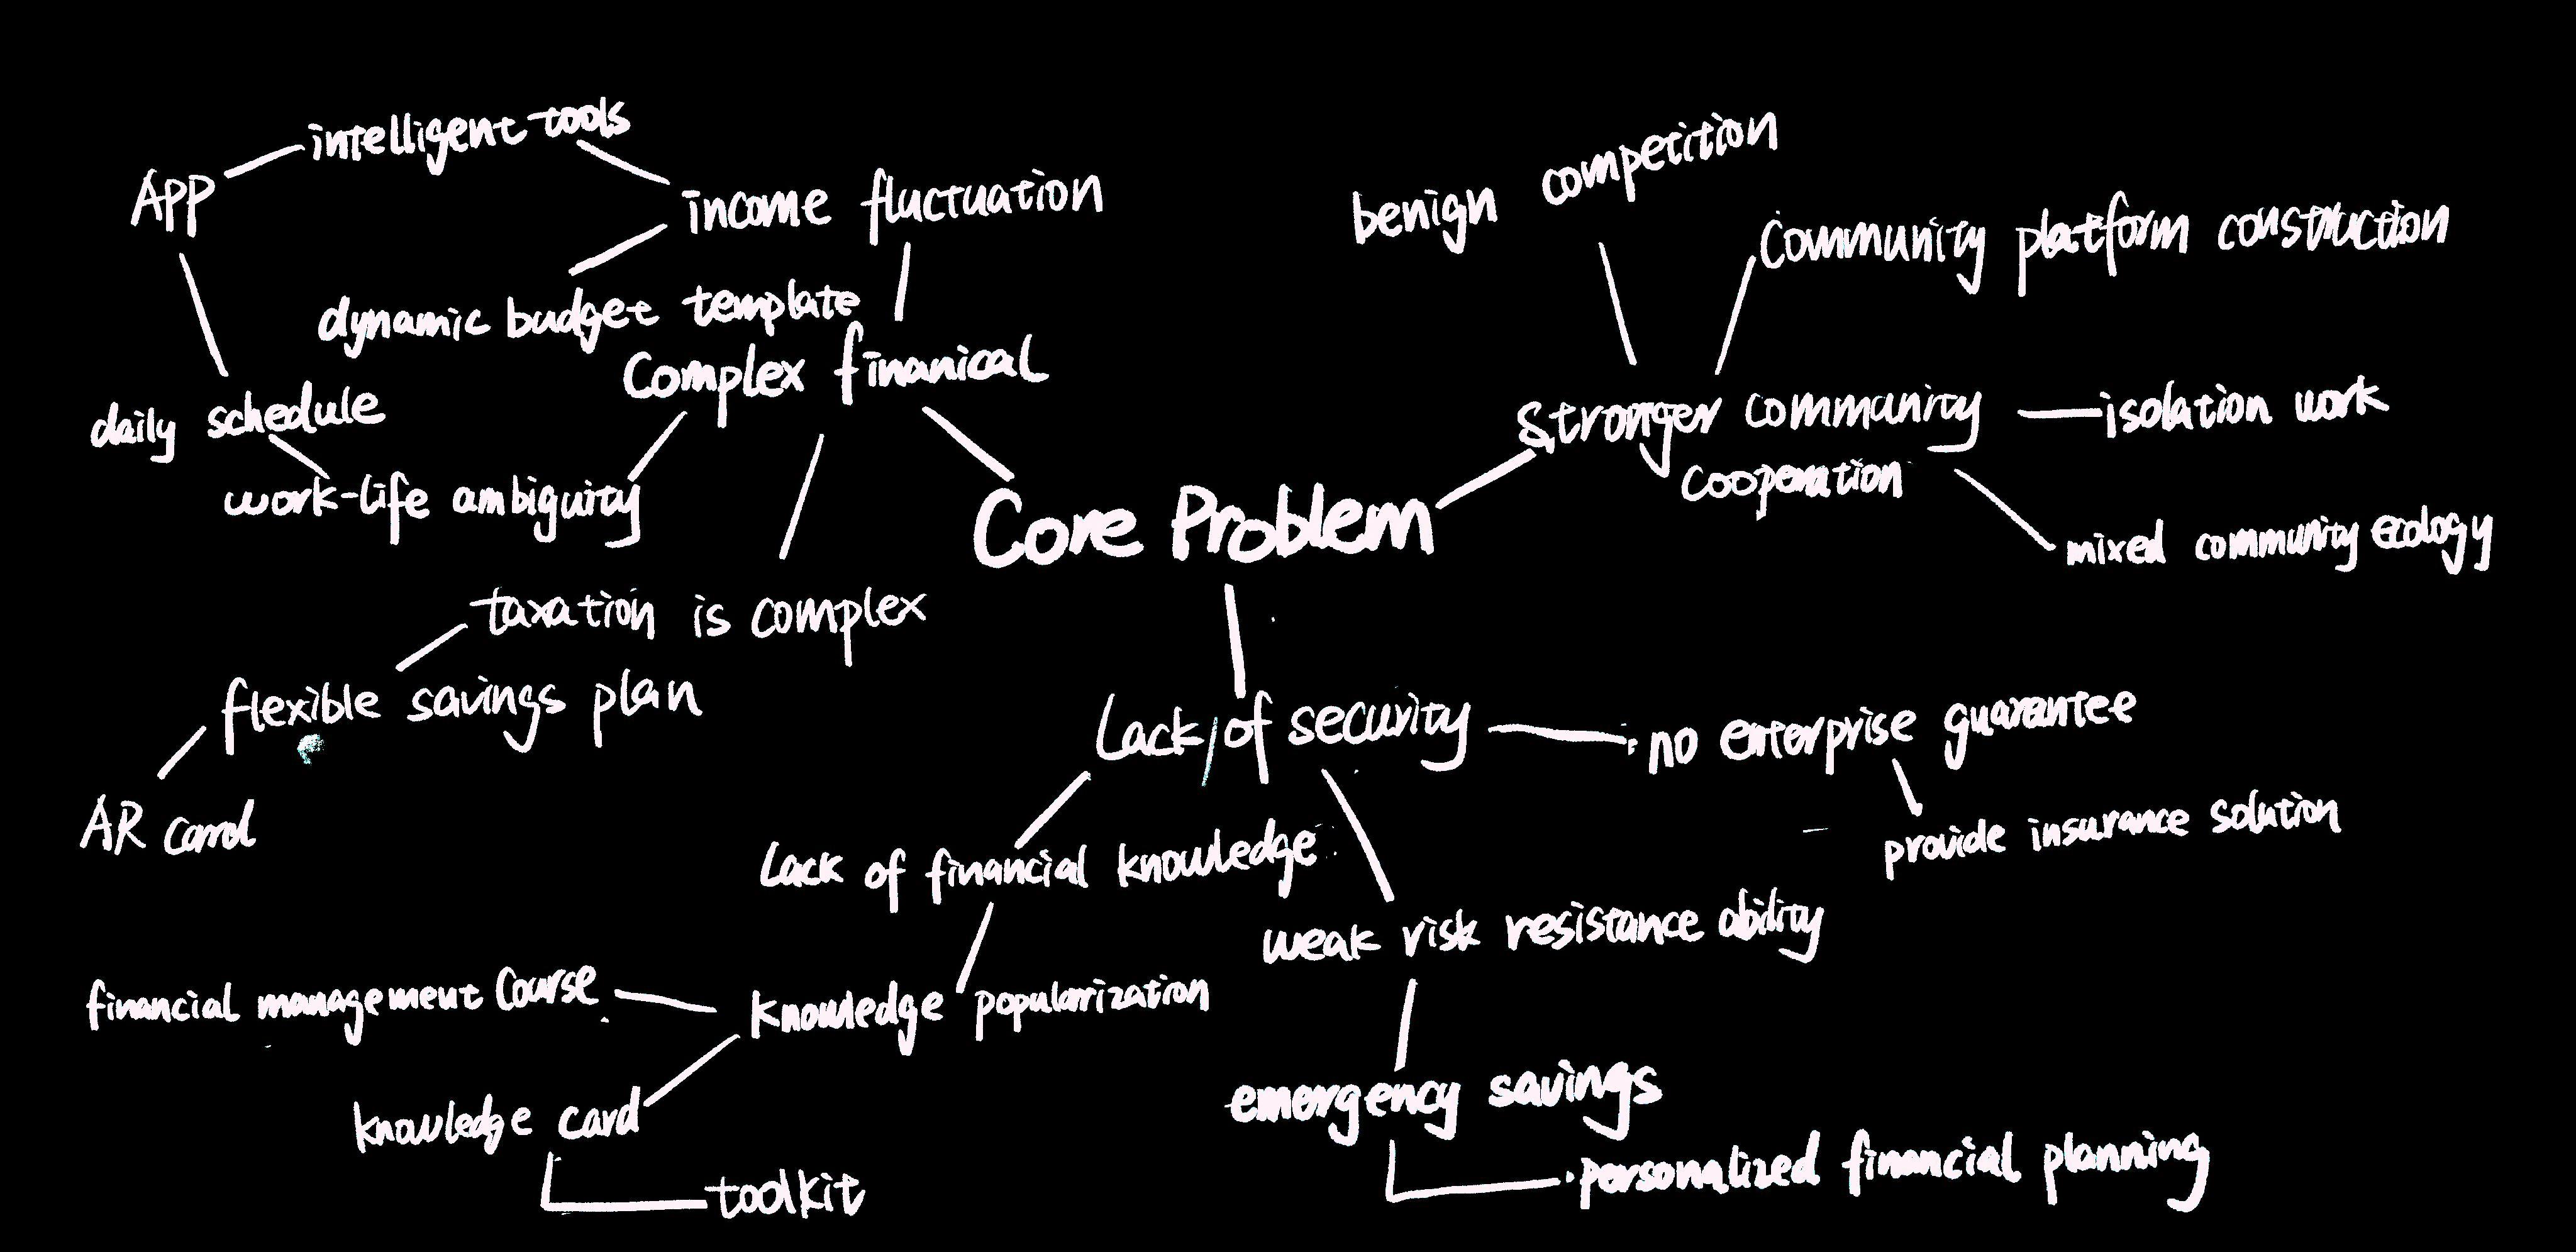 intelligent tools
APP
income fluctuation
dynamic budget template
Complex finanical
daily schedule
work-life ambiguity
taxation is complex
flexible savings plan
AR Card
benign competition
Community platform construction
Stronger community
cooperation
isolation work
mixed community ecology
Core Problem
Lack of security
no enterprise guarantee
provide insurance solution
Lack of financial knowledge
weak risk resistance ability
financial management Course
Knowledge popularization
knowledge card
toolkit
emergency savings
personalized financial planning